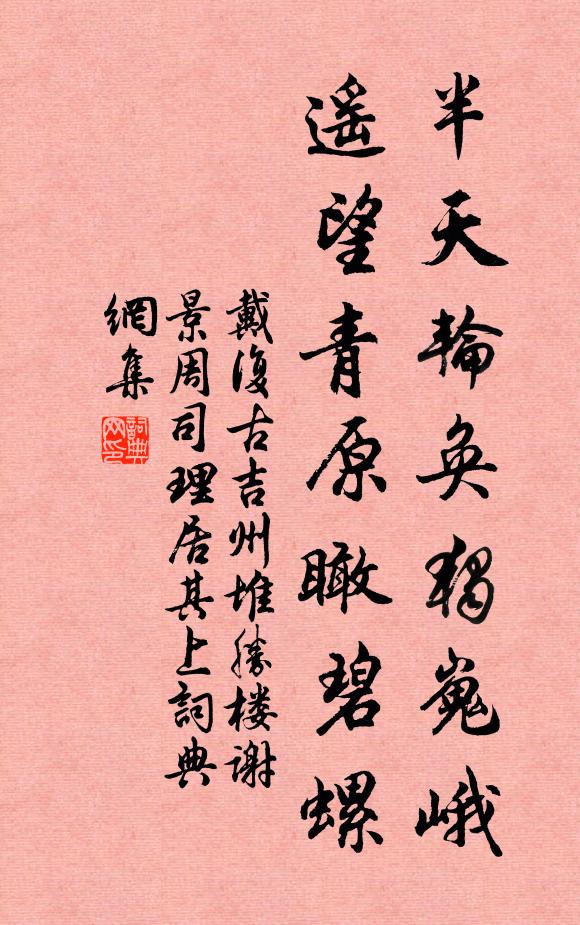 半天輪奐獨嵬峨
遥望青原瞰碧螺
戴復古吉州堆勝楼谢
景周司理居其上詞典
網集
詞典
网印